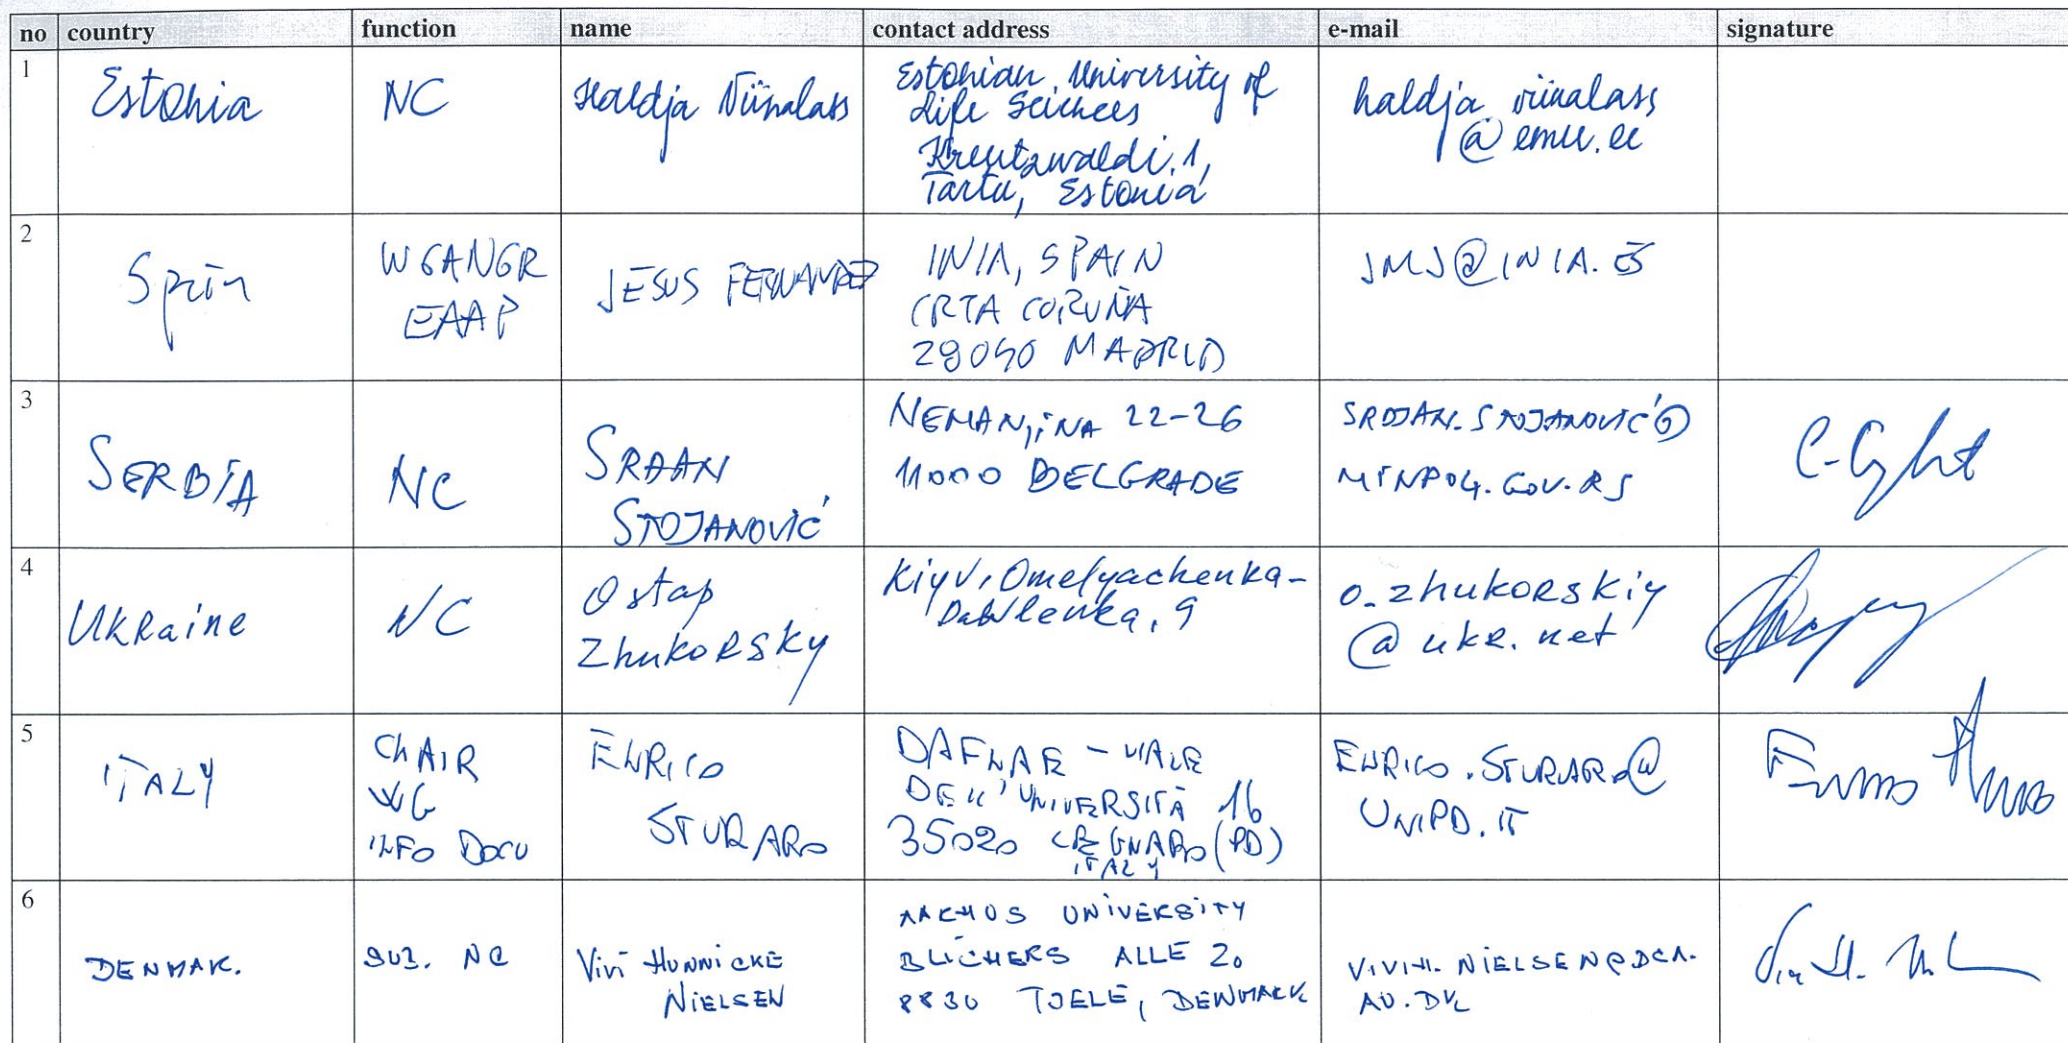 no country function name contact address e-mail signature
1 Estonia NC Haldja Viinalass
Estonian University of
Life Sciences
Kreutzwaldi 1,
Tartu, Estonia
haldja viinalass
@emu.ee
2 Spain
WGANGR
EAAP
JESUS FERNANDEZ
INIA, SPAIN
CRTA CORUÑA
28040 MADRID
JMJ@INIA.ES
3 SERBIA NC
SRĐAN
STOJANOVIĆ
NEMANJINA 22-26
11000 BELGRADE
SRDJAN.STOJANOVIĆ@
MINPOLJ.GOV.RS
4 Ukraine NC
Ostap
Zhukorsky
Kiyv, Omelyachenka-
9
o.zhukorskiy
@ukr.net
5 ITALY
CHAIR
WG
INFO DOCU
ENRICO
STURARO
DAFNAE - VIALE
DELL'UNIVERSITÀ 16
35020 LEGNARO (PD)
ITALY
ENRICO.STURARO@
UNIPD.IT
6 DENMAK. SUB. NC
Vivi HUNNICKE
NIELSEN
AARHUS UNIVERSITY
BLICHERS ALLE 20
8830 TJELE, DENMARK
VIVIH.NIELSEN@DCA.
AU.DK